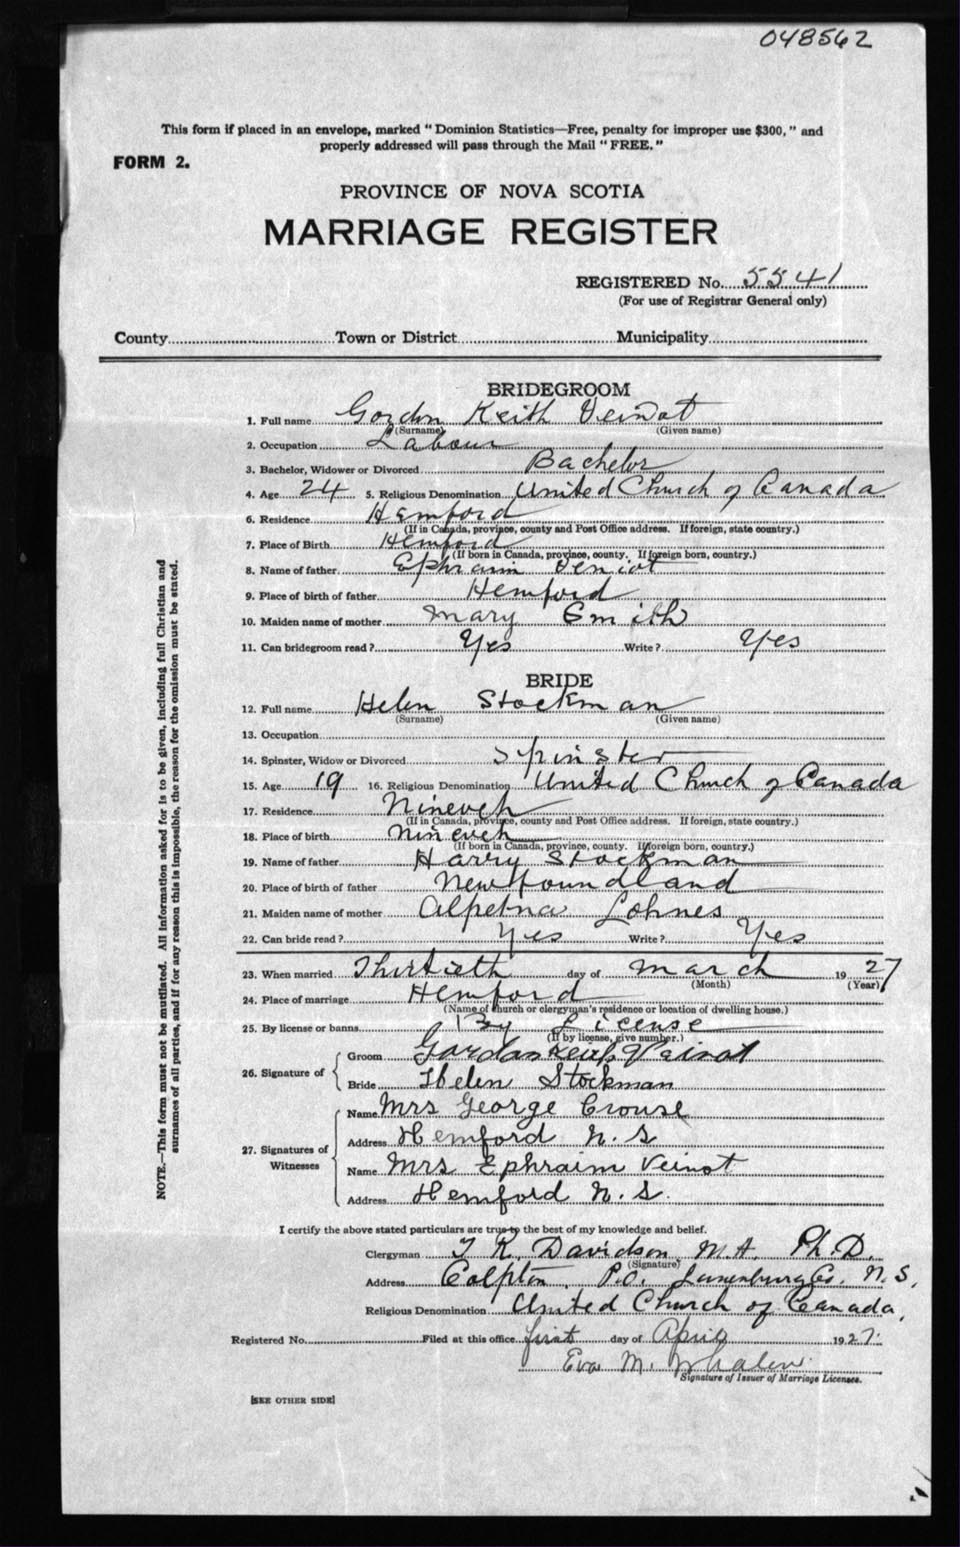 048562
This form if placed in an envelope, marked "Dominion Statistics—Free, penalty for improper use $300," and
properly addressed will pass through the Mail "FREE."
FORM 2.
PROVINCE OF NOVA SCOTIA
MARRIAGE REGISTER
REGISTERED No. 5541
(For use of Registrar General only)
County Town or District Municipality
BRIDEGROOM
1. Full name Gordon Keith Veinot
(Surname) (Given name)
2. Occupation Labour
3. Bachelor, Widower or Divorced Bachelor
4. Age 24 5. Religious Denomination United Church of Canada
6. Residence Hemford
(If in Canada, province, county and Post Office address. If foreign, state country.)
7. Place of Birth Hemford
(If born in Canada, province, county. If foreign born, country.)
8. Name of father Ephraim Veniot
9. Place of birth of father Hemford
10. Maiden name of mother Mary Smith
11. Can bridegroom read? Yes Write? Yes
BRIDE
12. Full name Helen Stockman
(Surname) (Given name)
13. Occupation
14. Spinster, Widow or Divorced Spinster
15. Age 19 16. Religious Denomination United Church of Canada
17. Residence Nineveh
(If in Canada, province, county and Post Office address. If foreign, state country.)
18. Place of birth Nineveh
(If born in Canada, province, county. If foreign born, country.)
19. Name of father Harry Stockman
20. Place of birth of father Newfoundland
21. Maiden name of mother Alpetna Lohnes
22. Can bride read? Yes Write? Yes
23. When married Thirtieth day of March 19 27
(Month) (Year)
24. Place of marriage Hemford
(Name of church or clergyman's residence or location of dwelling house.)
25. By license or banns By License
(If by license, give number.)
26. Signature of Groom Gordon Keith Veinot
Bride Helen Stockman
27. Signatures of Witnesses Name Mrs George Crouse
Address Hemford N.S
Name Mrs Ephraim Veinot
Address Hemford N.S.
I certify the above stated particulars are true to the best of my knowledge and belief.
Clergyman T R Davidson M.A. Ph.D.
(Signature)
Address Colpton P.O. Lunenburg Co. N.S.
Religious Denomination United Church of Canada,
Registered No. Filed at this office first day of April 1927.
Eva M. Whalen
Signature of Issuer of Marriage Licenses.
[SEE OTHER SIDE]
NOTE.—This form must not be mutilated. All information asked for is to be given, including full Christian and
surnames of all parties, and if for any reason this is impossible, the reason for the omission must be stated.